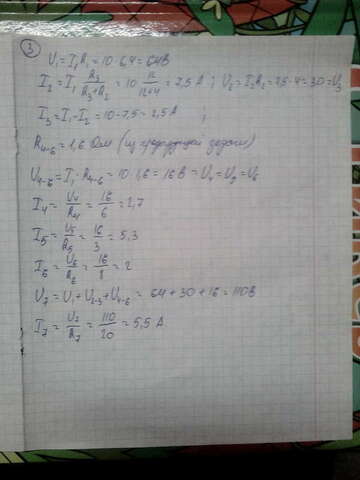 3
U₁=I₁R₁=10·6,4=64В
I₂=I₁ R₃/(R₃+R₂) = 10 12/(12+4) = 7,5 А ; U₂=I₂R₂=7,5·4=30=U₃
I₃=I₁-I₂=10-7,5=2,5А ;
R₄₋₆=1,6 Ом (из предыдущей задачи)
U₄₋₆=I₁·R₄₋₆=10·1,6=16В =U₄=U₅=U₆
I₄=U₄/R₄=16/6=2,7
I₅=U₅/R₅=16/3=5,3
I₆=U₆/R₆=16/8=2
U₇=U₁+U₂₋₃+U₄₋₆=64+30+16=110В
I₇=U₇/R₇=110/20=5,5 А